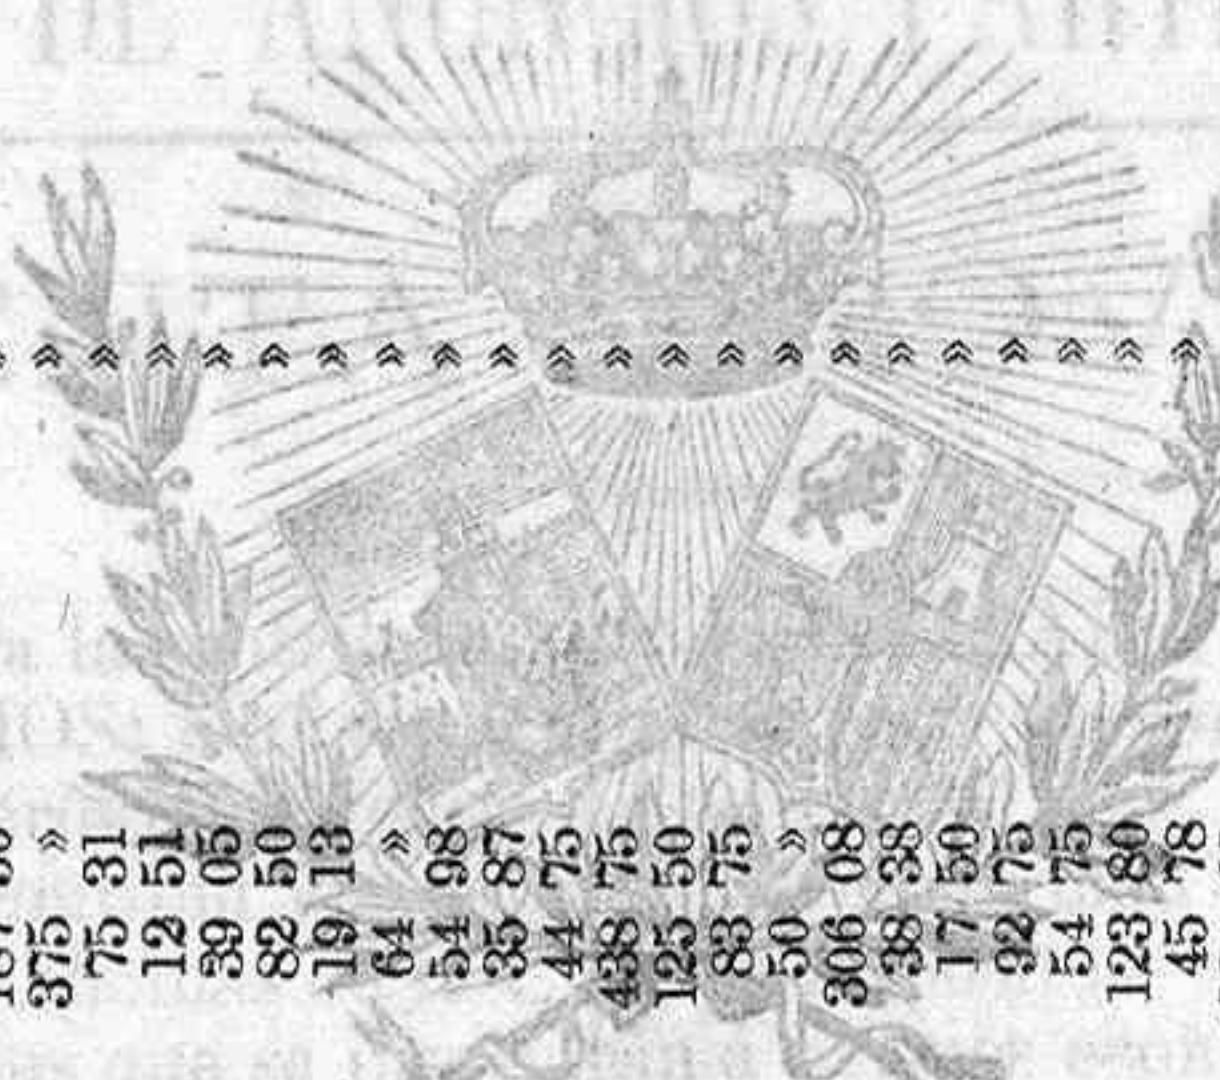 375 » »
75 31 »
12 51 »
39 05 »
82 50 »
19 13 »
64 » »
54 98 »
35 87 »
44 75 »
438 75 »
125 50 »
83 75 »
50 » »
306 08 »
38 38 »
17 50 »
92 75 »
54 75 »
123 80 »
45 78 »